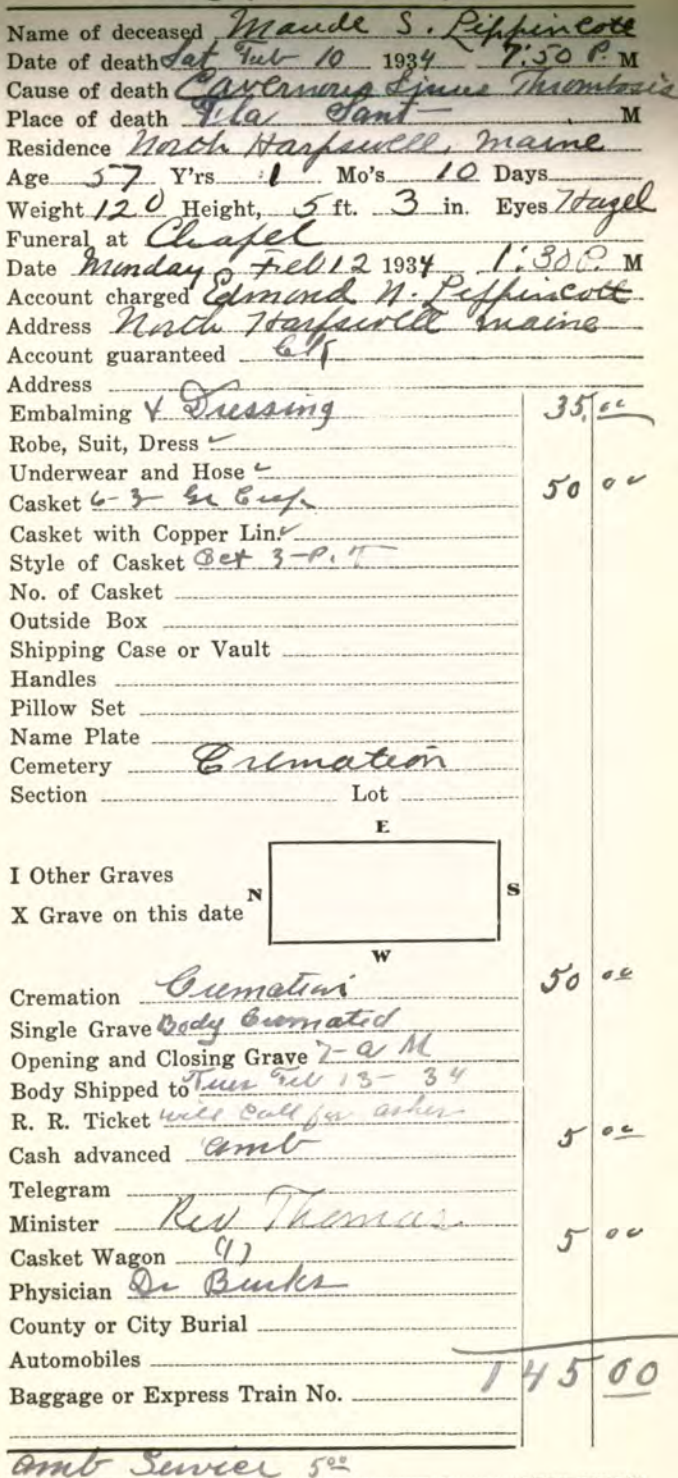 Name of deceased Maude S. Lippincott
Date of death Sat Feb 10 1934 7:50 P. M
Cause of death Cavernous Sinus Thrombosis
Place of death Fla Sant M
Residence North Harpswell, Maine
Age 57 Y'rs 1 Mo's 10 Days
Weight 120 Height, 5 ft. 3 in. Eyes Hazel
Funeral at Chapel
Date Monday Feb 12 1934 1:30 P. M
Account charged Edmond N. Lippincott
Address North Harpswell Maine
Account guaranteed
Address
Embalming & Dressing 35.00
Robe, Suit, Dress ✓
Underwear and Hose ✓
Casket 6-3 Gr Crep 50 00
Casket with Copper Lin. ✓
Style of Casket Oct 3-P. T
No. of Casket
Outside Box
Shipping Case or Vault
Handles
Pillow Set
Name Plate
Cemetery Cremation
Section Lot
E
I Other Graves
N S
X Grave on this date
W
Cremation Cremation 50 00
Single Grave Body Cremated
Opening and Closing Grave 7-a M
Body Shipped to Tues Feb 13-34
R. R. Ticket will call for ashes
Cash advanced amb 5 00
Telegram
Minister Rev Thomas
Casket Wagon 5 00
Physician Dr Burks
County or City Burial
Automobiles
145 00
Baggage or Express Train No.
amb Service 5 00